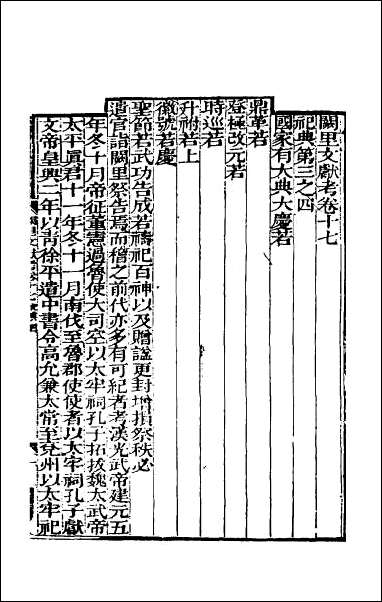 闕里文獻考卷十七
祀典第三之四
國家有大典大慶若
鼎革若
登極改元若
時巡若
升祔若上
徽號若慶
聖節若武功告成若禱祀百神以及贈諡更封增損祭秩必
遣官詣闕里祭告焉而稽之前代亦多有可紀者考漢光武帝建元五
年冬十月帝征董憲過魯使大司空以太牢祠孔子拓拔魏太武帝
太平真君十一年冬十一月南伐至魯郡使使者以太牢祠孔子獻
文帝皇興二年以青徐平遣中書令高允兼太常至兗州以太牢祀